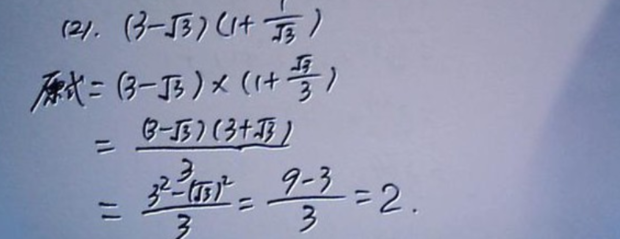 (2). (3-√3)(1+1/√3)
原式=(3-√3)×(1+√3/3)
=(3-√3)(3+√3)/3
=3²-(√3)²/3=9-3/3=2.